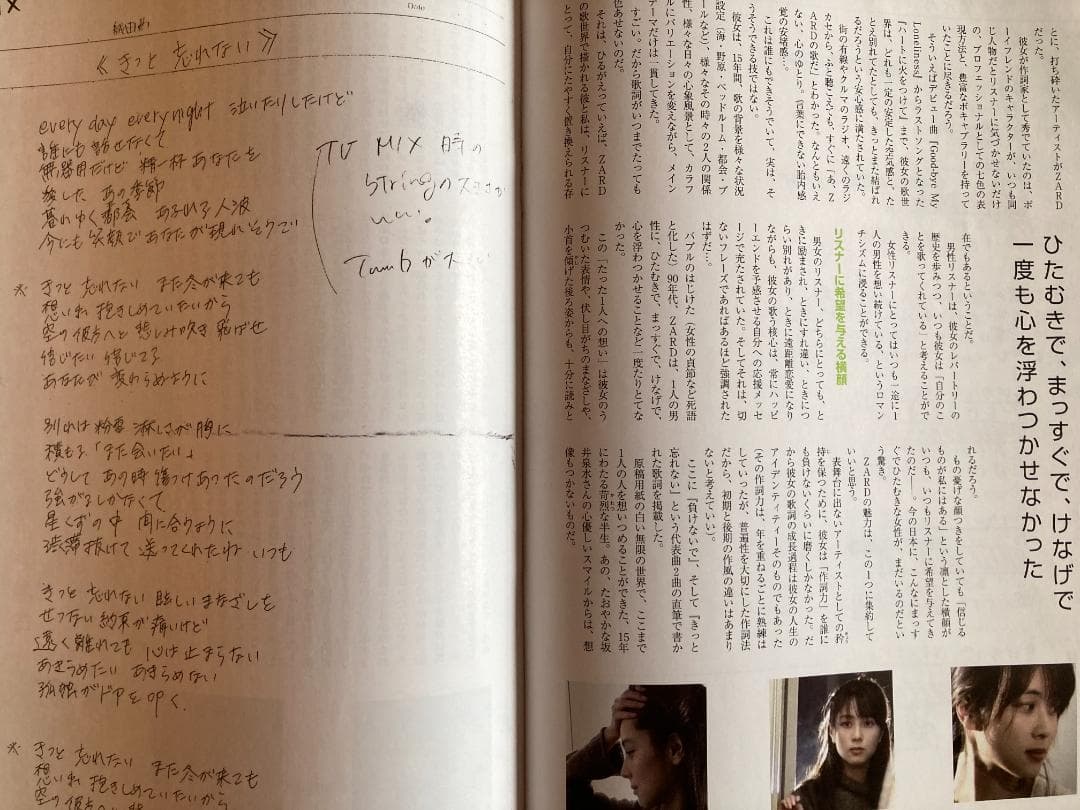 MIX
Date
≪きっと 忘れない≫
every day every night 泣いたりしたけど
誰にも話せなくて
無器用だけど 精一杯あなたを
愛した あの季節
暮れゆく都会 あふれる人波
今にも笑顔であなたが現れそうで
※ きっと 忘れない まだ冬が来ても
想い出 抱きしめていたいから
空の彼方へと 悲しみ吹き飛ばせ
信じたい 信じてる
あなたが 変わらぬように
別れは粉雪 淋しさが胸に
積もる「また会いたい」
どうして あの時 傷つけあったのだろう
強がるしかなくて
星くずの中 間に合うように
渋滞抜けて 送ってくれたわ いつも
きっと 忘れない 眩しいまなざしを
せつない約束が痛いけど
遠く離れても 心は止まらない
あきらめたい あきらめない
孤独がドアを叩く.
※ きっと 忘れない まだ冬が来ても
想い出 抱きしめていたいから
TV MIX 時の
Stringの大きさが
いい。
とに、打ち砕いたアーティストがZARD
だった。
彼女が作詞家として秀でていたのは、ボ
ーイフレンドのキャラクターが、いつも同
じ人物だとリスナーに気づかせないだけ
の、プロフェッショナルとしての七色の表
現方法と、豊富なボキャブラリーを持って
いたことに尽きるだろう。
そういえばデビュー曲『Good-bye My
Loneliness』からラストソングとなった
『ハートに火をつけて』まで、彼女の歌世
界は、どれも一定の安定した空気感と、た
とえ別れてたとしても、きっとまた結ばれ
るだろうという安心感に満されていた。
街の有線やクルマのラジオ、遠くのラジ
カセから、ふと聴こえても、すぐに「あ、Z
ARDの歌だ」とわかった。なんともいえ
ない、心のゆとり。言葉にできない胎内感
覚の安堵感…。
これは誰にもできそうでいて、実は、そ
うそうできる技ではない。
彼女は、15年間、歌の背景を様々な状況
設定（海・野原・ベッドルーム・都会・プ
ールなど）、様々なその時々の2人の関係
性、様々な日々の心象風景として、カラフ
ルにバリエーションを変えながら、メイン
テーマだけは一貫してきた。
すごい。だから歌詞がいつまでたっても
色あせないのだ。
それは、ひるがえっていえば、ZARD
の歌世界で描かれる彼と私は、リスナーに
とって、自分にたやすく置き換えられる存
ひたむきで、まっすぐで、けなげで
一度も心を浮わつかせなかった
在でもあるということだ。
男性リスナーは、彼女のレパートリーの
歴史を歩みつつ、いつも彼女は「自分のこ
とを歌ってくれている」と考えることがで
きる。
女性リスナーにとってはいつも一途に1
人の男性を想い続けている、というロマン
チシズムに浸ることができる。
リスナーに希望を与える横顔
男女のリスナー、どちらにとっても、と
きに励まされ、ときにすれ違い、ときにつ
らい別れがあり、ときに遠距離恋愛になり
ながらも、彼女の歌う核心は、常にハッピ
ーエンドを予感させる自分への応援メッセ
ージで充たされていた。そしてそれは、切
ないフレーズであればあるほど強調された
はずだ…。
バブルのはじけた（女性の貞節など死語
と化した）90年代、ZARDは、1人の男
性に、ひたむきで、まっすぐで、けなげで、
心を浮わつかせることなど一度たりとてな
かった。
この「たった1人への想い」は彼女のう
つむいた表情や、伏し目がちのまなざしや、
小首を傾げた後ろ姿からも、十分に読みと
れるだろう。
もの憂げな顔つきをしていても「信じる
ものが私にはある」という凛とした横顔が
いつも、いつもリスナーに希望を与えてき
たのだ──。今の日本に、こんなにまっす
ぐでひたむきな女性が、まだいるのだとい
う驚き。
ZARDの魅力は、この1つに集約して
いいと思う。
表舞台に出ないアーティストとしての矜
持を保つために、彼女は「作詞力」を誰に
も負けないくらいに磨くしかなかった。だ
から彼女の歌詞の成長過程は彼女の人生の
アイデンティティーそのものでもあった
（その作詞力は、年を重ねるごとに熟練は
していったが、普遍性を大切にした作詞法
だから、初期と後期の作風の違いはあまり
ないと考えていい）。
ここに『負けないで』、そして『きっと
忘れない』という代表曲2曲の直筆で書か
れた歌詞を掲載した。
原稿用紙の白い無限の世界で、ここまで
1人の人を想いつめることができた、15年
にわたる苛烈な半生。あの、たおやかな坂
井泉水さんの心優しいスマイルからは、想
像もつかないものだ。